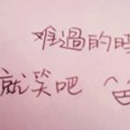 難過的時
就笑吧 ^